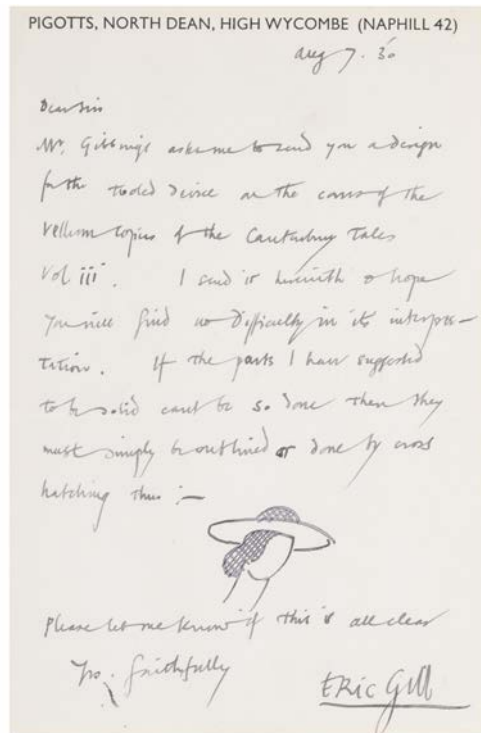 PIGOTTS, NORTH DEAN, HIGH WYCOMBE (NAPHILL 42)
Aug 7. 30
Dear Sirs
Mr. Gibbings asks me to send you a design
for the tooled device on the covers of the
Vellum copies of the Canterbury Tales
Vol iii. I send it herewith & hope
you will find no difficulty in its interpre–
tation. If the parts I have suggested
to be solid can't be so done then they
must simply be outlined or done by cross
hatching thus :—
Please let me know if this is all clear
Yrs. faithfully
ERIC Gill